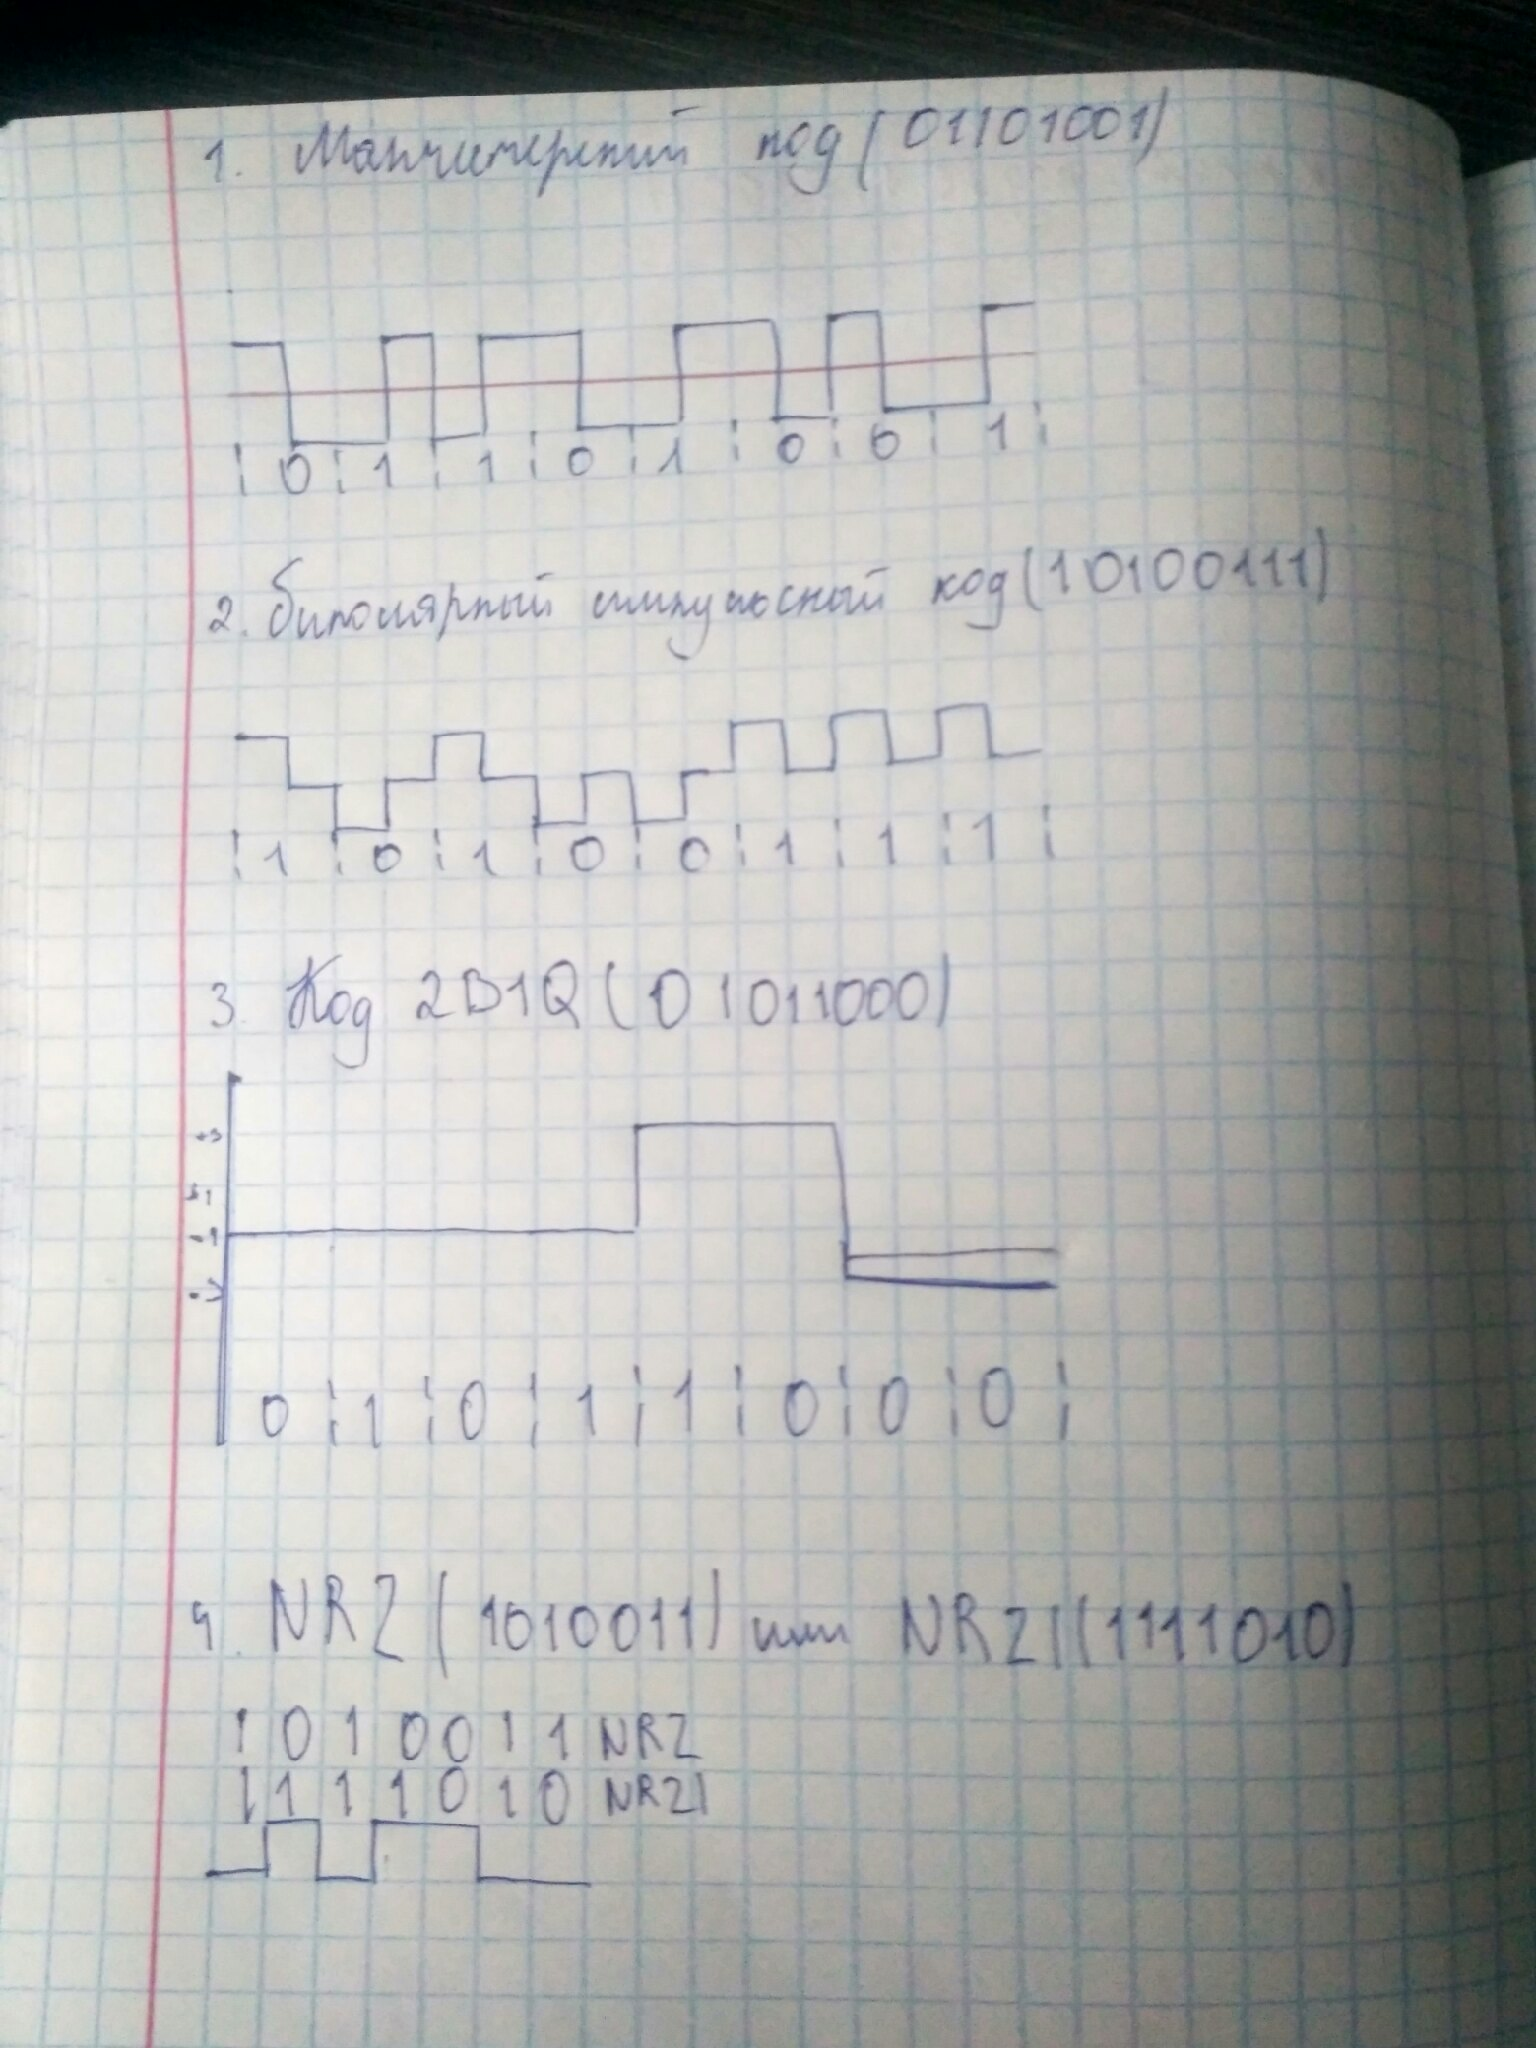 1. Манчестерский код (01101001)
0 1 1 0 1 0 0 1
2. биполярный импульсный код (10100111)
1 0 1 0 0 1 1 1
3. Код 2B1Q (01011000)
+3
-1
0 1 0 1 1 0 0 0
4. NRZ (1010011) или NRZI (1111010)
1 0 1 0 0 1 1 NRZ
1 1 1 1 0 1 0 NRZI